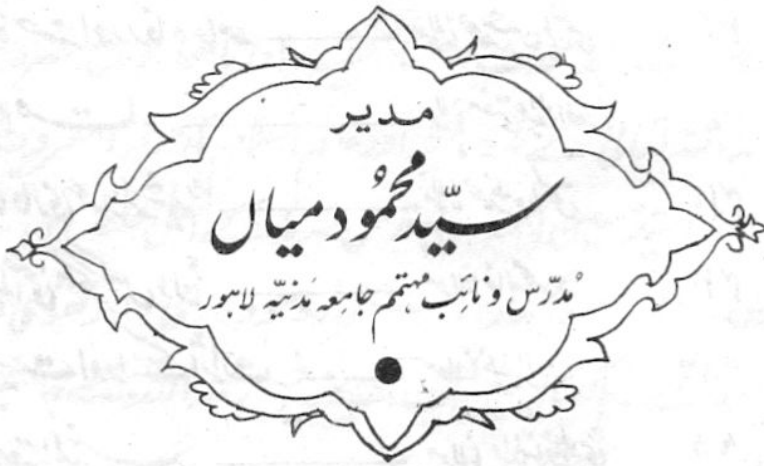 مدیر
سیّد محمُود میاں
مُدرّس و نائِب مہتمم جامِعہ مَدنیّہ لاہور